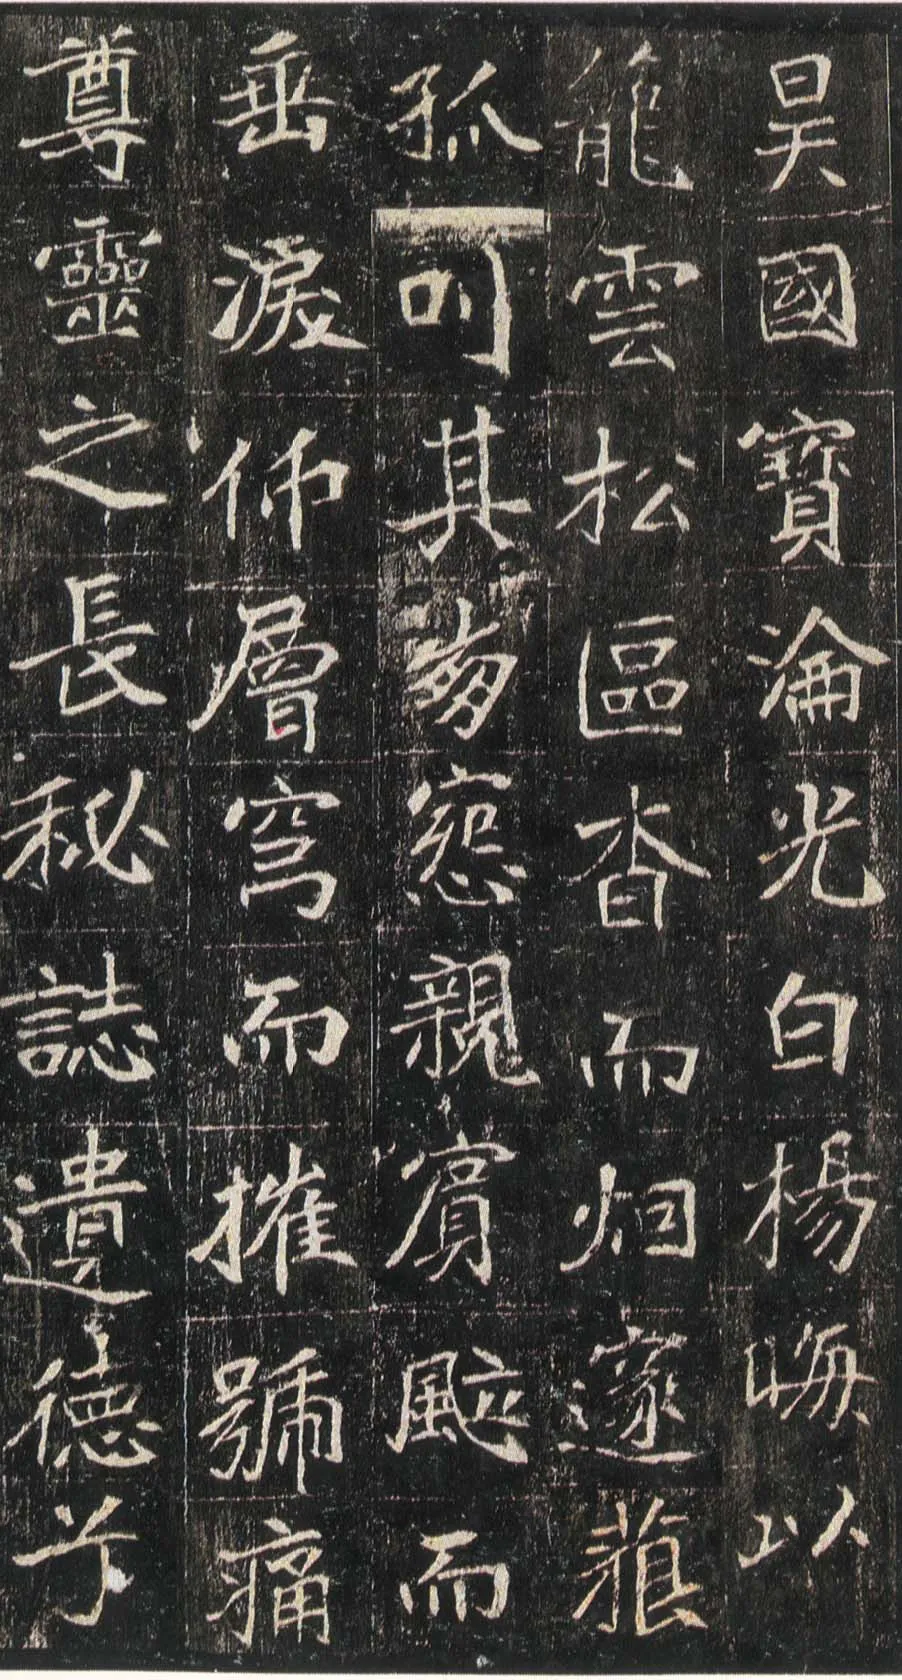 昊國寶淪光白楊晦以
籠雲松區杳而烟邃藐
孤叫其惌親賓颯而
垂淚仰層穹而摧號痛
尊靈之長秘誌遺德兮